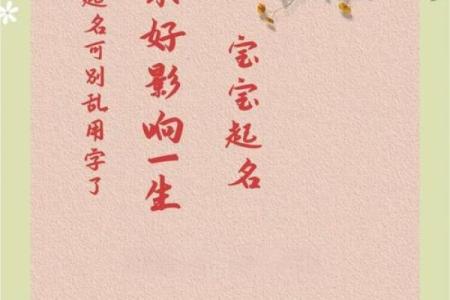 宝宝起名
好影响一生
起名可别乱用字了